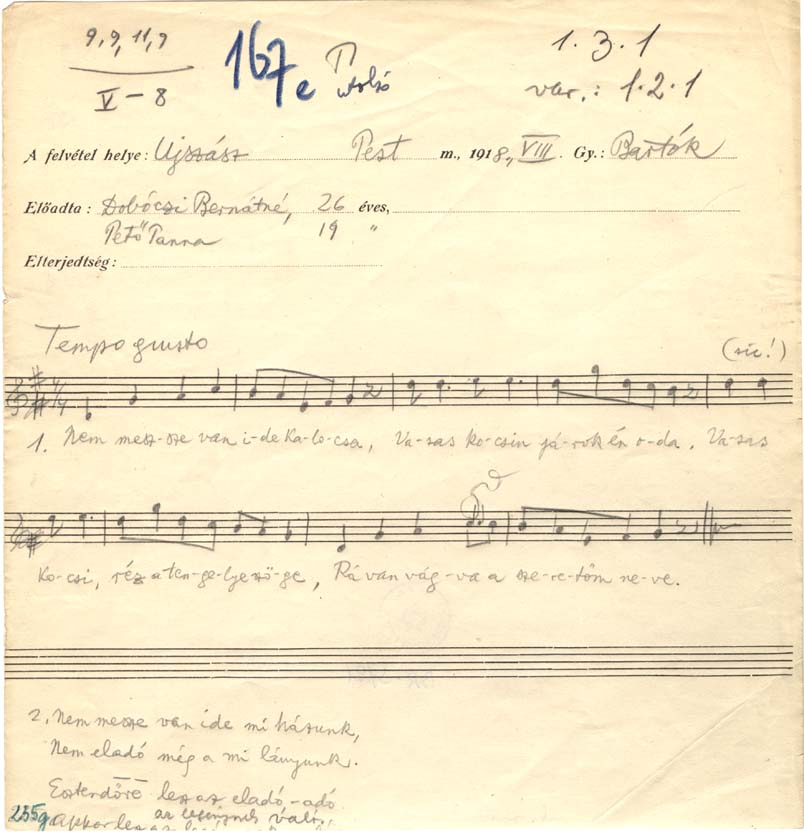 9, 9, 11, 9
V - 8
167e
utolsó
1. 3. 1
var.: 1. 2. 1
A felvétel helye: Ujszász Pest m., 1918, VIII. Gy.: Bartók
Előadta: Dobóczi Bernátné, 26 éves,
Pető Panna 19 "
Elterjedtség:
Tempo giusto
(sic!)
4/4
1. Nem mesz-sze van i-de Ka-lo-csa, Va-sas ko-csin já-rok én o-da. Va-sas
ko-csi, réz a ten-ge-lye szö-ge, Rá van vág-va a sze-re-tőm ne-ve.
2. Nem messze van ide mi házunk,
Nem eladó még a mi lányunk.
Esztendőre lesz az eladó-adó
235g Akkor lesz az
való